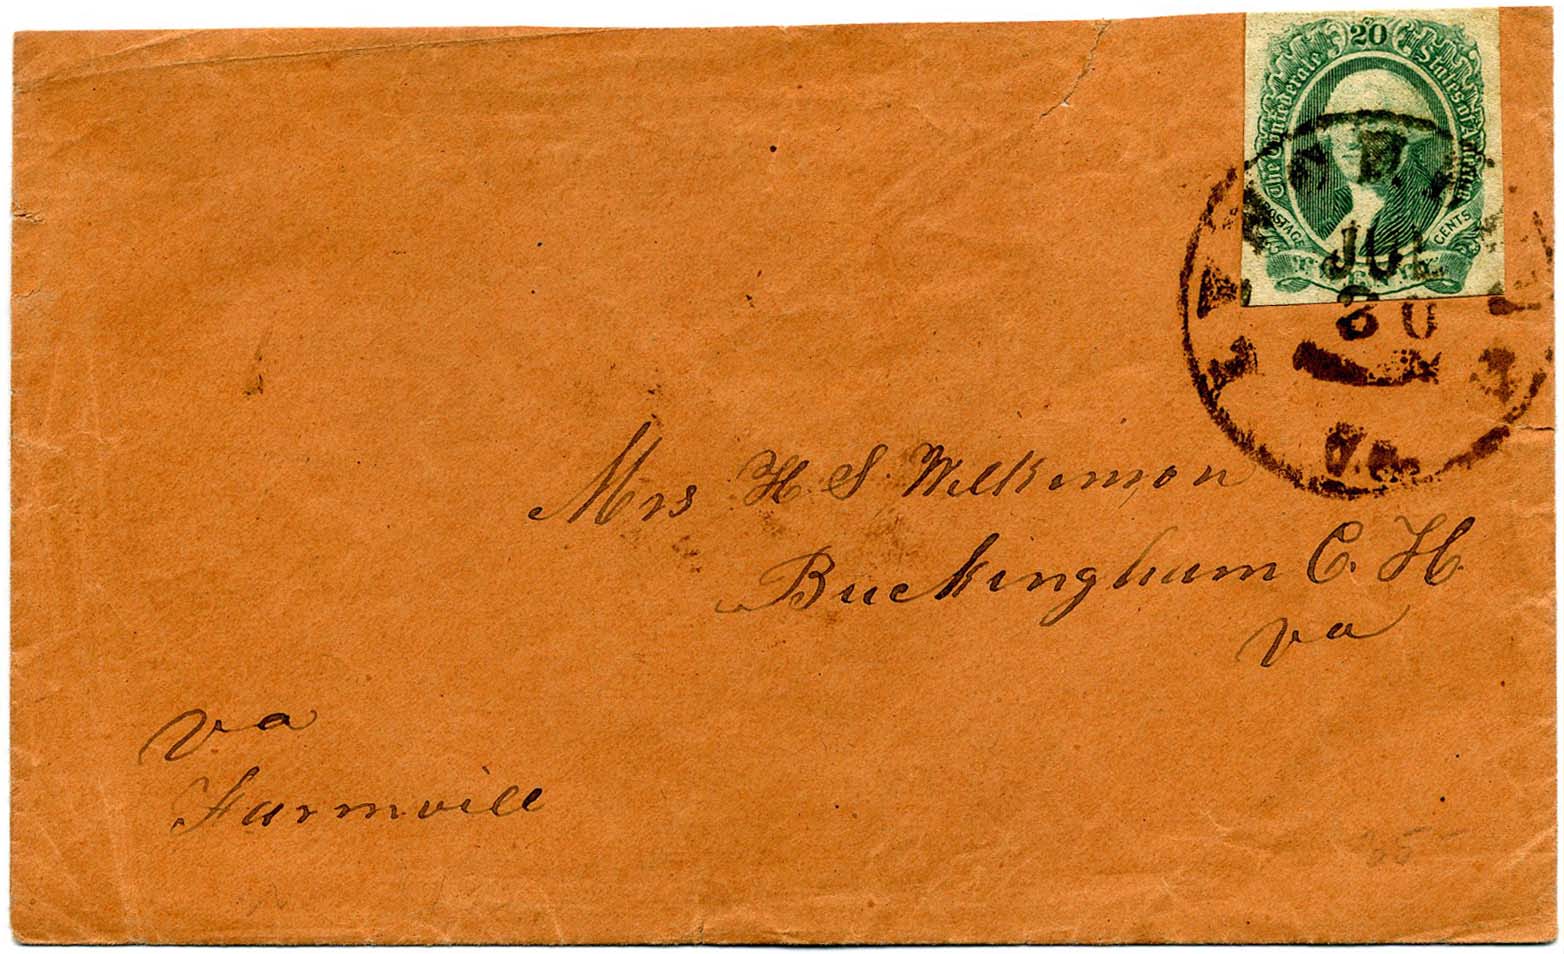 20
The Confederate States of America
POSTAGE CENTS
JUL
30
VA.
Mrs H. S. Wilkinson
Buckingham C. H.
va
va
Farmvill